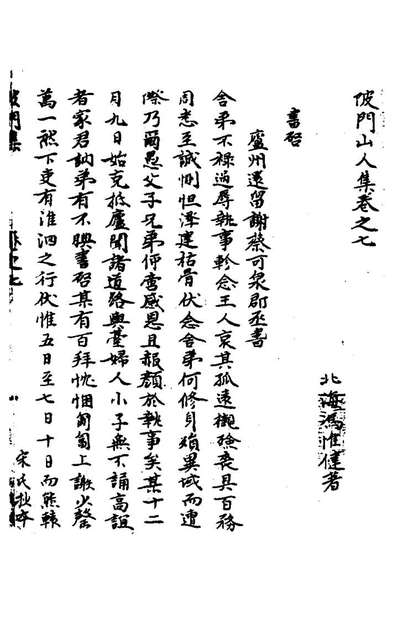 陂門山人集卷之七
北海馮惟健著
書啓
廬州還留謝蔡可泉郡丞書
舍弟不祿過辱執事軫念王人哀其孤遠櫬殮喪具百務
周悉至誠惻怛澤逮枯骨伏念舍弟何修身殞異域而遭
際乃爾愚父子兄弟俯當感恩且報顏於執事矣某十二
月九日始克抵廬聞諸道路輿臺婦人小子無不誦高誼
者家君訥弟有不腆書啓某有百拜忱悃匍匐上謝少罄
萬一然下吏有淮泗之行伏惟五日至七日十日而熊轅
陂門集
卷之七
宋氏抄本